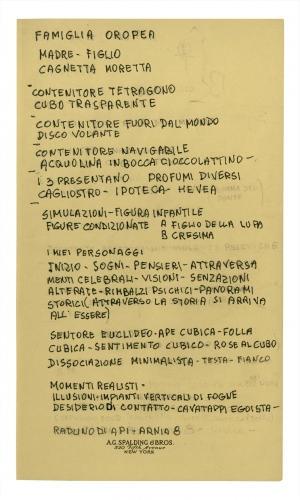 FAMIGLIA OROPEA
MADRE - FIGLIO
CAGNETTA MORETTA
- CONTENITORE TETRAGONO
CUBO TRASPARENTE
- CONTENITORE FUORI DAL MONDO
DISCO VOLANTE
CONTENITORE NAVIGABILE
ACQUOLINA IN BOCCA CIOCCOLATTINO -
I 3 PRESENTANO PROFUMI DIVERSI
CAGLIOSTRO - IPOTECA - HEVEA
SIMULAZIONI - FIGURA INFANTILE
FIGURE CONDIZIONATE A FIGLIO DELLA LUPA
B CRESIMA
I MIEI PERSONAGGI
INIZIO - SOGNI - PENSIERI - ATTRAVERSA
MENTI CELEBRALI - VISIONI - SENZAZIONI
ALTERATE - RIMBALZI PSICHICI - PANORAMI
STORICI (ATTRAVERSO LA STORIA SI ARRIVA
ALL' ESSERE)
SENTORE EUCLIDEO - APE CUBICA - FOLLA
CUBICA - SENTIMENTO CUBICO - ROSE AL CUBO
DISSOCIAZIONE MINIMALISTA - TESTA - FIANCO
MOMENTI REALISTI -
ILLUSIONI - IMPIANTI VERTICALI DI FOGNE
DESIDERIO DI CONTATTO - CAVATAPPI EGOISTA -
RADUNO DI API + ARNIA 8
A.G. SPALDING & BROS.
520 Fifth Avenue
NEW YORK